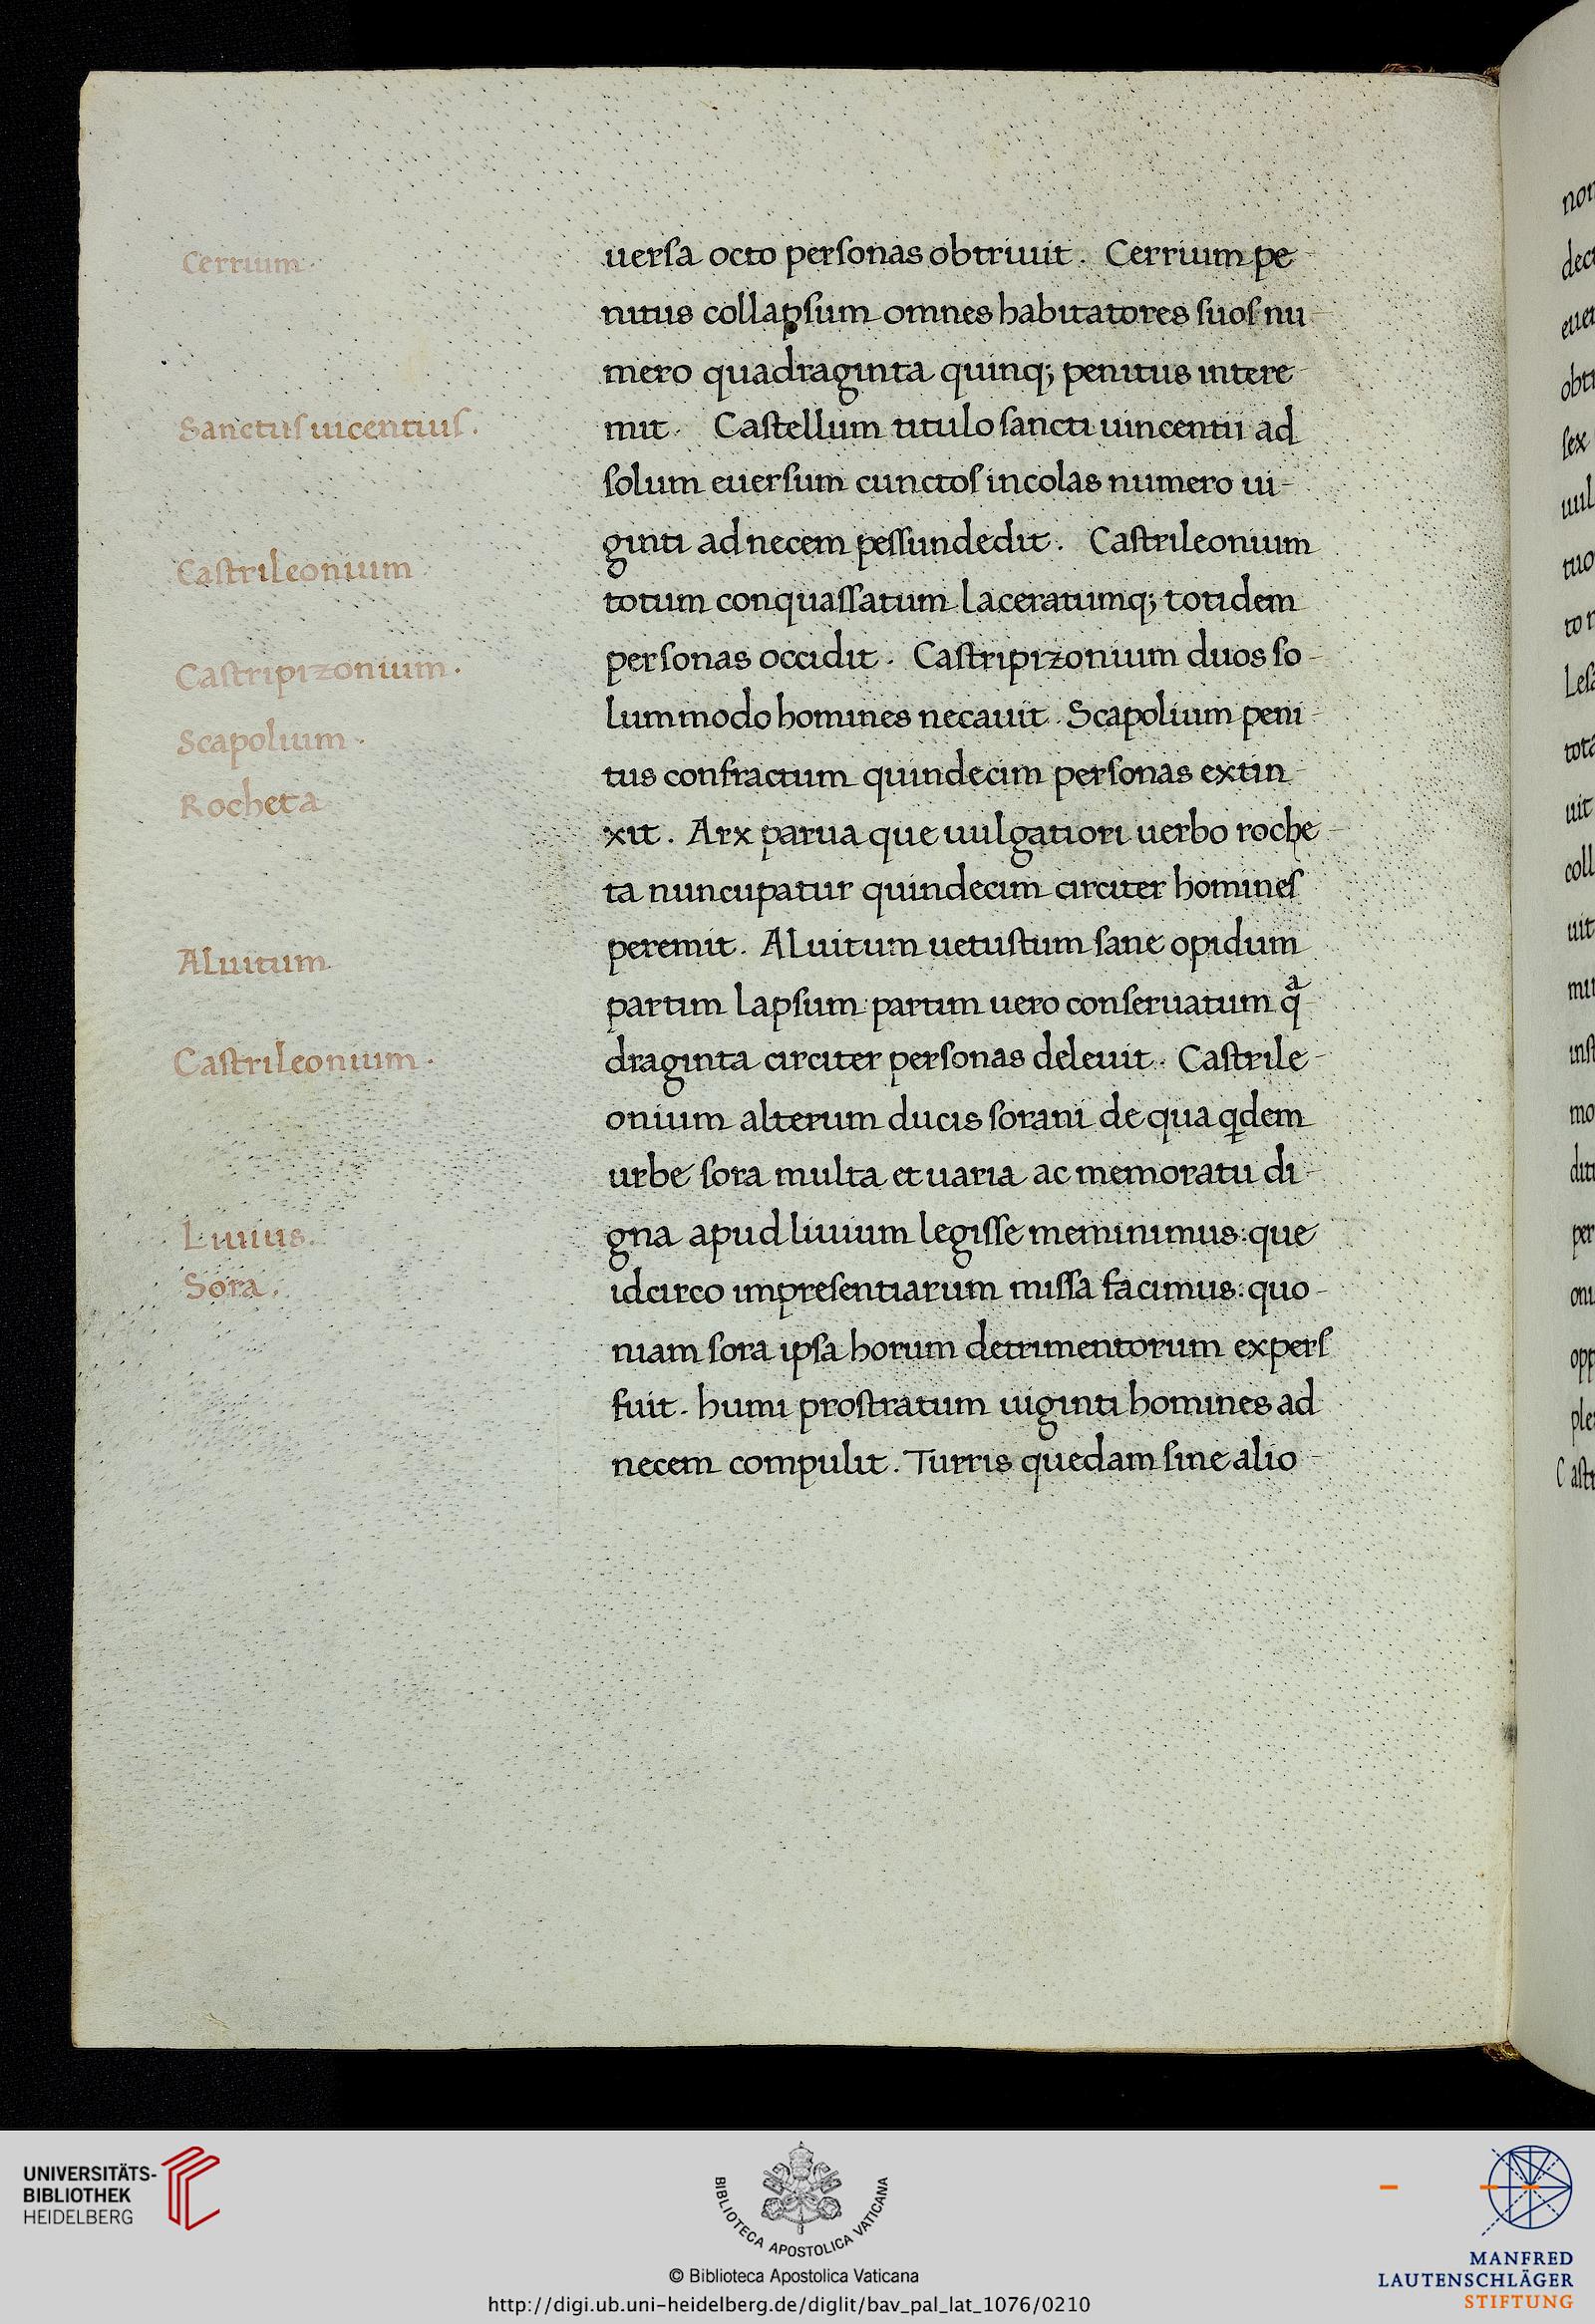 Cerrium.
Sanctus uicentius.
Castrileonium
Castripizonium.
Scapolium.
Rocheta
Aluitum
Castrileonium.
Liuius.
Sora.
uersa octo personas obtriuit. Cerrium pe
nitus collapsum omnes habitatores suos nu
mero quadraginta quinq; penitus intere
mit. Castellum titulo sancti uincentii ad
solum euersum cunctos incolas numero ui-
ginti ad necem pessundedit. Castrileonium
totum conquassatum laceratumq; totidem
personas occidit. Castripizonium duos so-
lummodo homines necauit. Scapolium peni-
tus confractum quindecim personas extin-
xit. Arx parua que uulgatiori uerbo roche-
ta nuncupatur quindecim circiter homines
peremit. Aluitum uetustum sane opidum
partim lapsum: partim uero conseruatum qᵃ
draginta circiter personas deleuit. Castrile-
onium alterum ducis sorani de qua qdem
urbe sora multa et uaria ac memoratu di-
gna apud liuium legisse meminimus: que
idcirco impresentiarum missa facimus: quo-
niam sora ipsa horum detrimentorum expers
fuit. humi prostratum uiginti homines ad
necem compulit. Turris quedam sine alio-
non
dect
euer
obtr
sex
uul
tuo
to r
Lesa
tota
uit
coll
uit
mu
inst
mo
ditu
per
oni
opp
ple
Castr
UNIVERSITÄTS-
BIBLIOTHEK
HEIDELBERG
BIBLIOTECA APOSTOLICA VATICANA
© Biblioteca Apostolica Vaticana
http://digi.ub.uni-heidelberg.de/diglit/bav_pal_lat_1076/0210
MANFRED
LAUTENSCHLÄGER
STIFTUNG